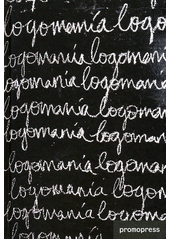 logomanía logo
logomanía logomaní
logomanía logomaní
logomanía logomanía
logomanía logomanía
logomanía logomanía
logomanía logomanía
logomanía logoman
logomanía logoman
logomanía logoma
logomanía
promopress